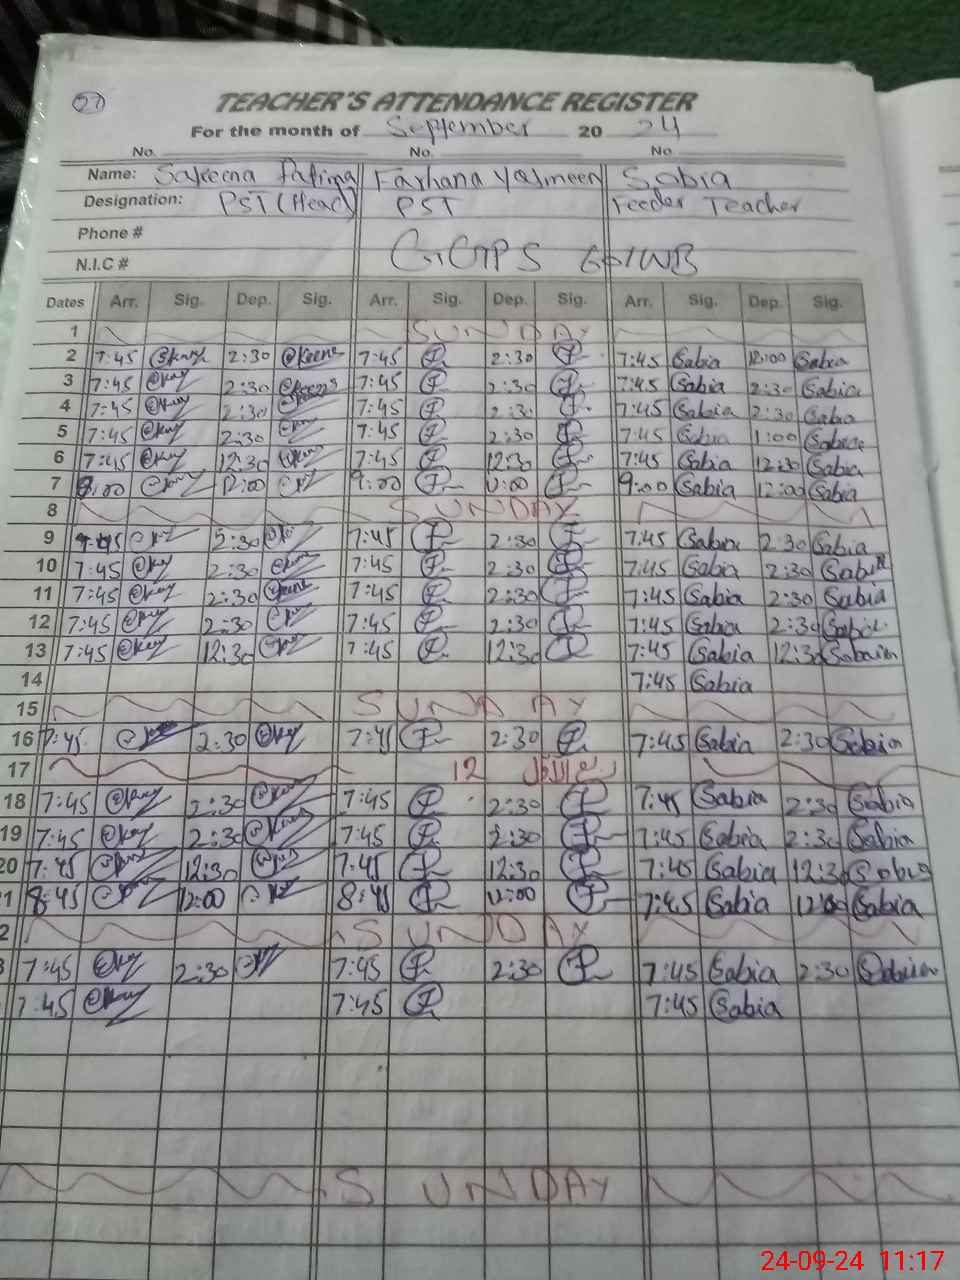 27
TEACHER'S ATTENDANCE REGISTER
For the month of September 20 24
No. No. No.
Name: Sakeena Fatima Farhana Yasmeen Sabia
Designation: PST (Head) PST Feeder Teacher
Phone #
N.I.C #
Dates Arr. Sig. Dep. Sig. Arr. Sig. Dep. Sig. Arr. Sig. Dep. Sig.
1 SUNDAY
2 7:45 2:30 7:45 2:30 7:45 Sabia 12:00 Sabia
3 7:45 2:30 7:45 2:30 7:45 Sabia 2:30 Sabia
4 7:45 2:30 7:45 2:30 7:45 Sabia 2:30 Sabia
5 7:45 2:30 7:45 2:30 7:45 Sabia 1:00 Sabia
6 7:45 12:30 7:45 12:30 7:45 Sabia 12:30 Sabia
7 9:00 12:00 9:00 12:00 9:00 Sabia 12:00 Sabia
8 SUNDAY
9 7:45 2:30 7:45 2:30 7:45 Sabia 2:30 Sabia
10 7:45 2:30 7:45 2:30 7:45 Sabia 2:30 Sabia
11 7:45 2:30 7:45 2:30 7:45 Sabia 2:30 Sabia
12 7:45 2:30 7:45 2:30 7:45 Sabia 2:30 Sabia
13 7:45 12:30 7:45 12:30 7:45 Sabia 12:30
14 7:45 Sabia
15 SUNDAY
16 7:45 2:30 7:45 2:30 7:45 Sabia 2:30 Sabia
17 12 ربیع الاول
18 7:45 2:30 7:45 2:30 7:45 Sabia 2:30 Sabia
19 7:45 2:30 7:45 2:30 7:45 Sabia 2:30 Sabia
20 7:45 12:30 7:45 12:30 7:45 Sabia 12:30
1 8:45 12:00 8:45 12:00 7:45 Sabia 12:00 Sabia
2 SUNDAY
3 7:45 2:30 7:45 2:30 7:45 Sabia 2:30
7:45 7:45 7:45 Sabia
SUNDAY
24-09-24 11:17